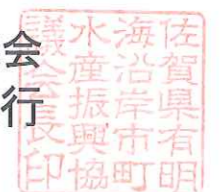 会
行
佐賀縣有明
海沿岸市町
水産振興協
議會長印